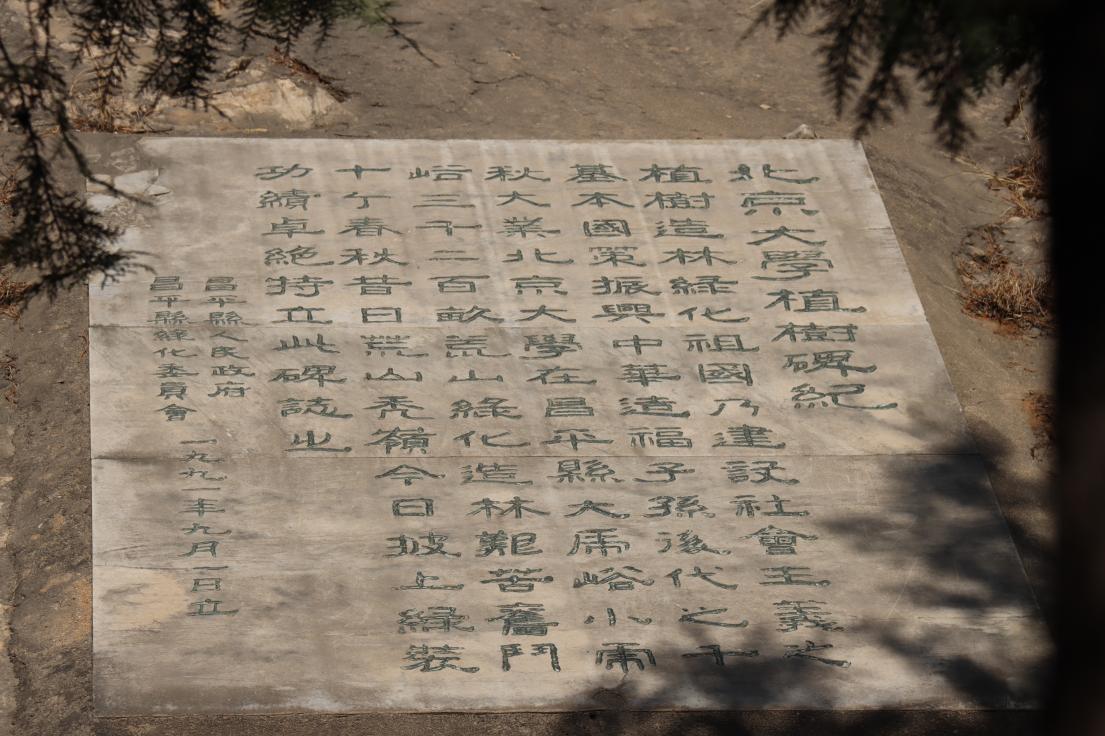 北京大學植樹碑紀
植樹造林綠化祖國乃建設社會主義之
基本國策振興中華造福子孫後代之千
秋大業北京大學在昌平縣大虎峪小虎
峪三千二百畝荒山綠化造林艱苦奮鬥
十个春秋昔日荒山禿嶺今日披上綠裝
功績卓絕持立此碑誌之
昌平縣人民政府
昌平縣綠化委員會
一九九一年九月一日立